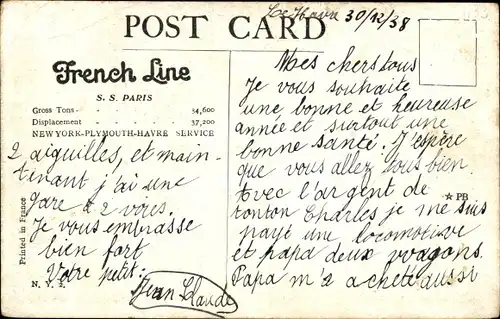 Le Havre 30/12/38
POST CARD
French Line
S. S. PARIS
Gross Tons - - - - - - 34,600
Displacement - - - - - 37,200
NEW YORK-PLYMOUTH-HAVRE SERVICE
Mes chers tous
Je vous souhaite
une bonne et heureuse
année et surtout une
bonne santé. J'espère
que vous allez tous bien.
Avec l'argent de
tonton Charles je me suis
payé une locomotive
et papa deux wagons.
Papa m'a acheté aussi
2 aiguilles, et main-
tenant j'ai une
gare à 2 voies.
Je vous embrasse
bien fort
Votre petit:
Jean Claude
★ PB
Printed in France
N. Y. 2.